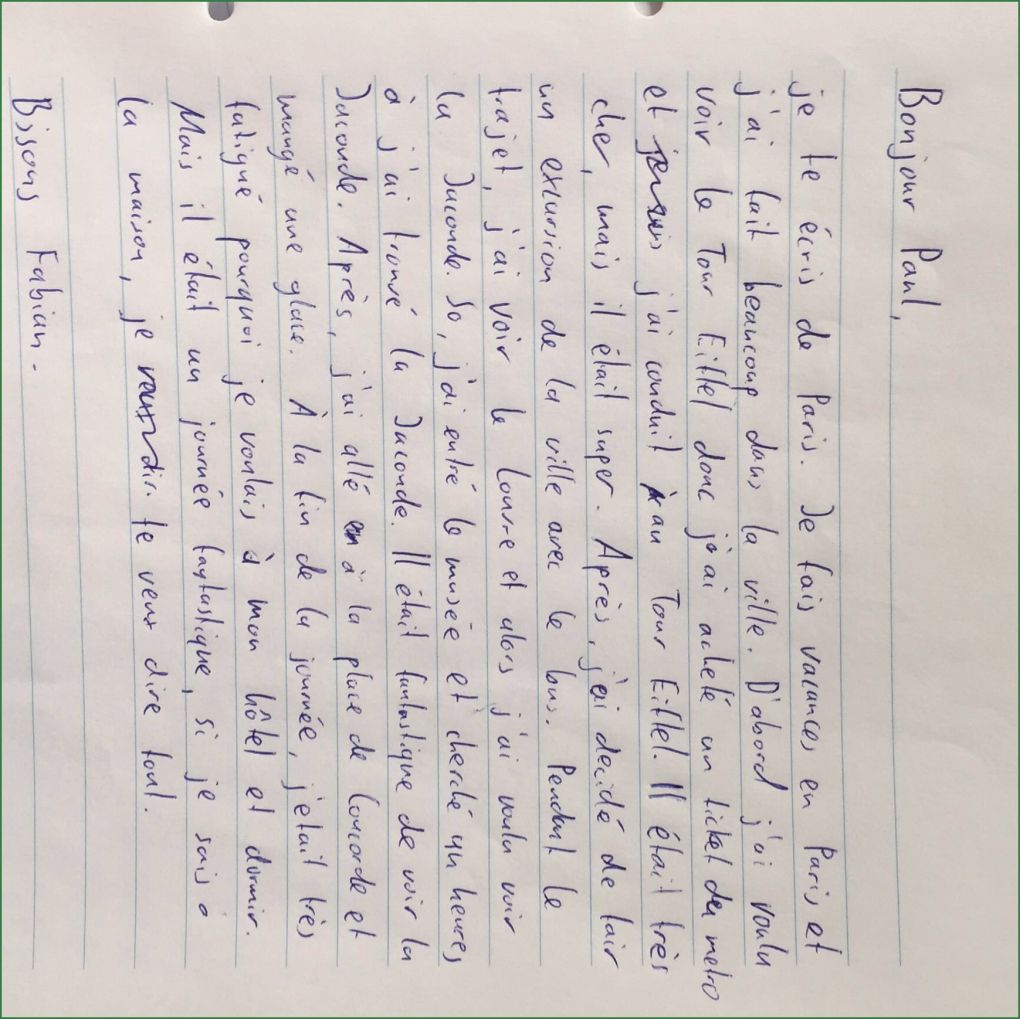 Bonjour Paul,
je te écris de Paris. Je fais vacances en Paris et
j'ai fait beaucoup dans la ville. D'abord j'ai voulu
voir le Tour Eiffel donc j'ai acheté un ticket du metro
et j'ai conduit au Tour Eiffel. Il était très
cher, mais il était super. Après, j'ai decidé de fair
un excursion de la ville avec le bus. Pendant le
trajet, j'ai voir le Louvre et alors j'ai voulu voir
la Jaconde. So, j'ai entré le musée et cherché un heures,
à j'ai trouvé la Jaconde. Il était fantastique de voir la
Jaconde. Après, j'ai allé à la place de Concorde et
mangé une glace. À la fin de la journée, j'était très
fatigué pourquoi je voulais à mon hôtel et dormir.
Mais il était un journée fantastique, si je suis à
la maison, je te veux dire tout.
Bisous Fabian.